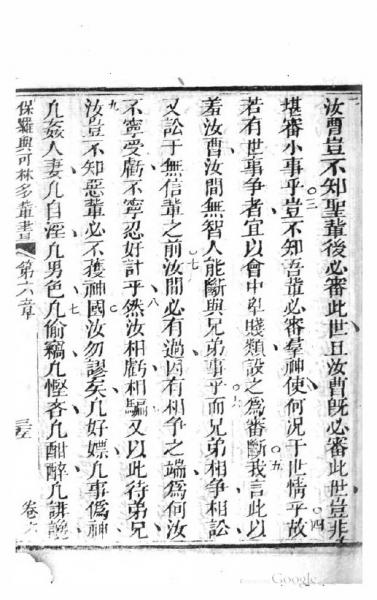 汝曹豈不知聖輩後必審此世且汝曹既必審此世豈非
四
堪審小事乎豈不知吾輩必審羣神使何况于世情乎故
三 五
若有世事爭者宜以會中卑賤類設之為審斷我言此以
羞汝曹汝間無智人能斷與兄弟事乎而兄弟相爭相訟
六
又訟于無信輩之前汝間必有過因有相爭之端為何汝
七
不寧受虧不寧忍好計乎然汝相虧相騙又以此待弟兄
八
汝豈不知惡輩必不獲神國汝勿謬矣凡好嫖凡事偽神
九
凡姦人妻凡自淫凡男色凡偷竊凡慳吝凡酣醉凡誹謗
保羅與可林多輩書 第六章 三五 卷六
Google